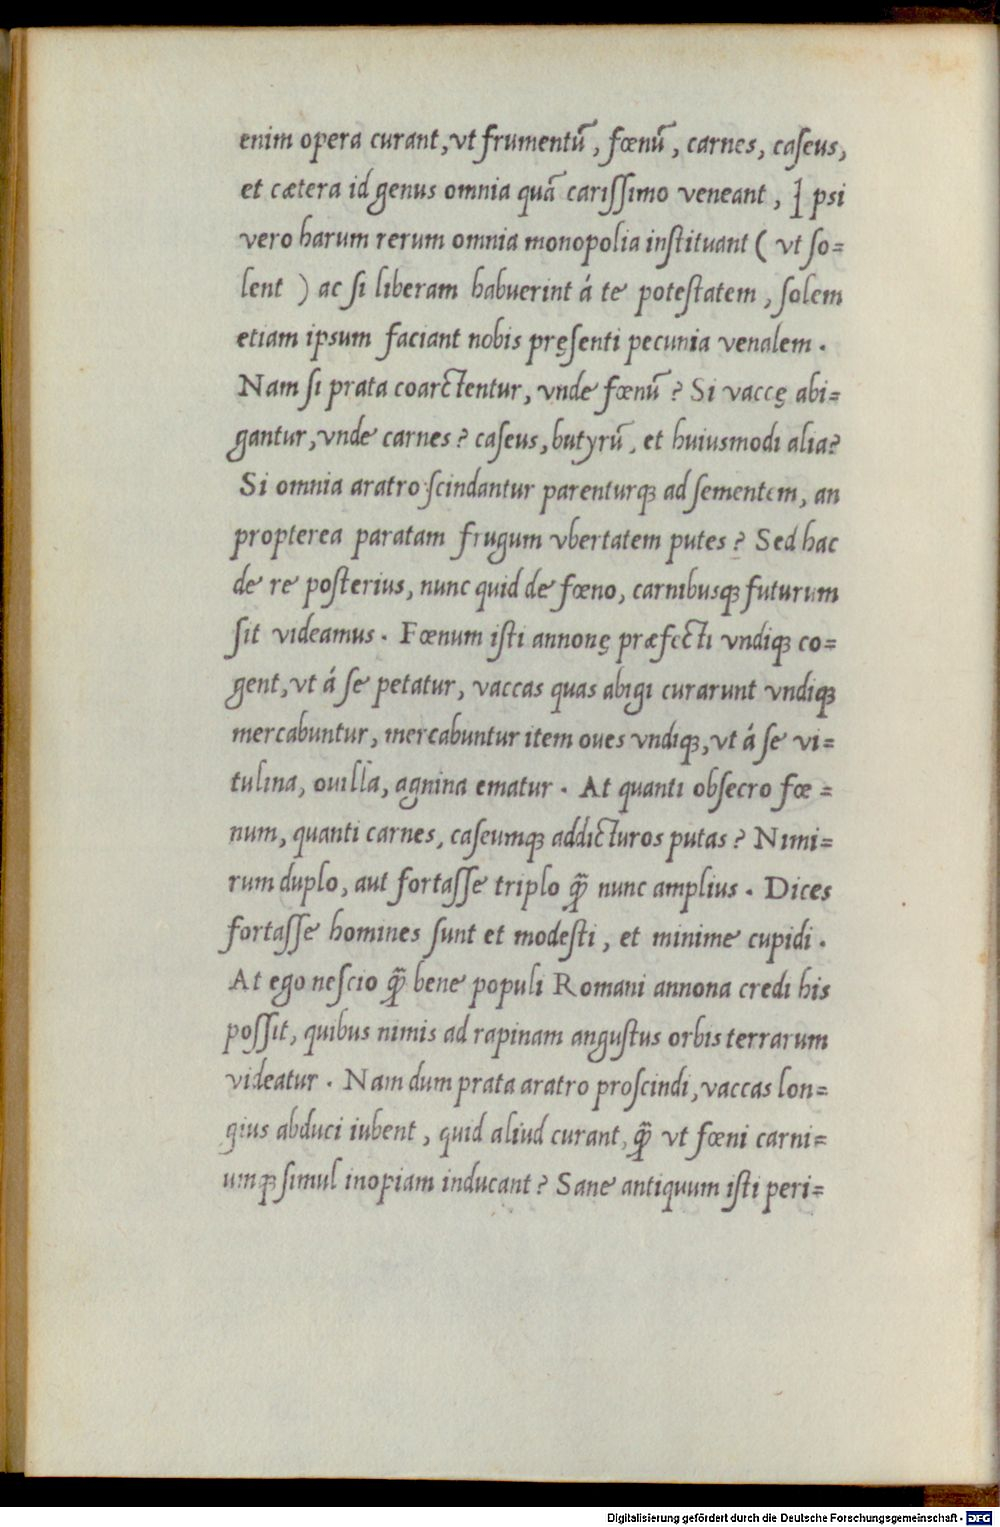 enim opera curant, vt frumentū, fœnū, carnes, caſeus,
et cætera id genus omnia quā cariſſimo veneant, Ipsi
vero harum rerum omnia monopolia inſtituant ( vt ſo=
lent ) ac ſi liberam habuerint á te poteſtatem, ſolem
etiam ipsum faciant nobis pręſenti pecunia venalem.
Nam ſi prata coarctentur, vnde fœnū? Si vaccę abi=
gantur, vnde carnes? caſeus, butyrū, et huiusmodi alia?
Si omnia aratro ſcindantur parenturqꝫ ad ſementem, an
propterea paratam frugum vbertatem putes? Sed hac
de re poſterius, nunc quid de fœno, carnibusqꝫ futurum
ſit videamus. Fœnum iſti annonę præfecti vndiqꝫ co=
gent, vt á ſe petatur, vaccas quas abigi curarunt vndiqꝫ
mercabuntur, mercabuntur item oues vndiqꝫ, vt á ſe vi=
tulina, ouilla, agnina ematur. At quanti obſecro fœ=
num, quanti carnes, caſeumqꝫ addicturos putas? Nimi=
rum duplo, aut fortaſſe triplo qꝫ̃ nunc amplius. Dices
fortaſſe homines ſunt et modeſti, et minime cupidi.
At ego neſcio qꝫ̃ bene populi Romani annona credi his
poſſit, quibus nimis ad rapinam anguſtus orbis terrarum
videatur. Nam dum prata aratro proſcindi, vaccas lon=
gius abduci iubent, quid aliud curant, qꝫ̃ vt fœni carni=
umqꝫ ſimul inopiam inducant? Sane antiquum iſti peri=
Digitalisierung gefördert durch die Deutsche Forschungsgemeinschaft - DFG